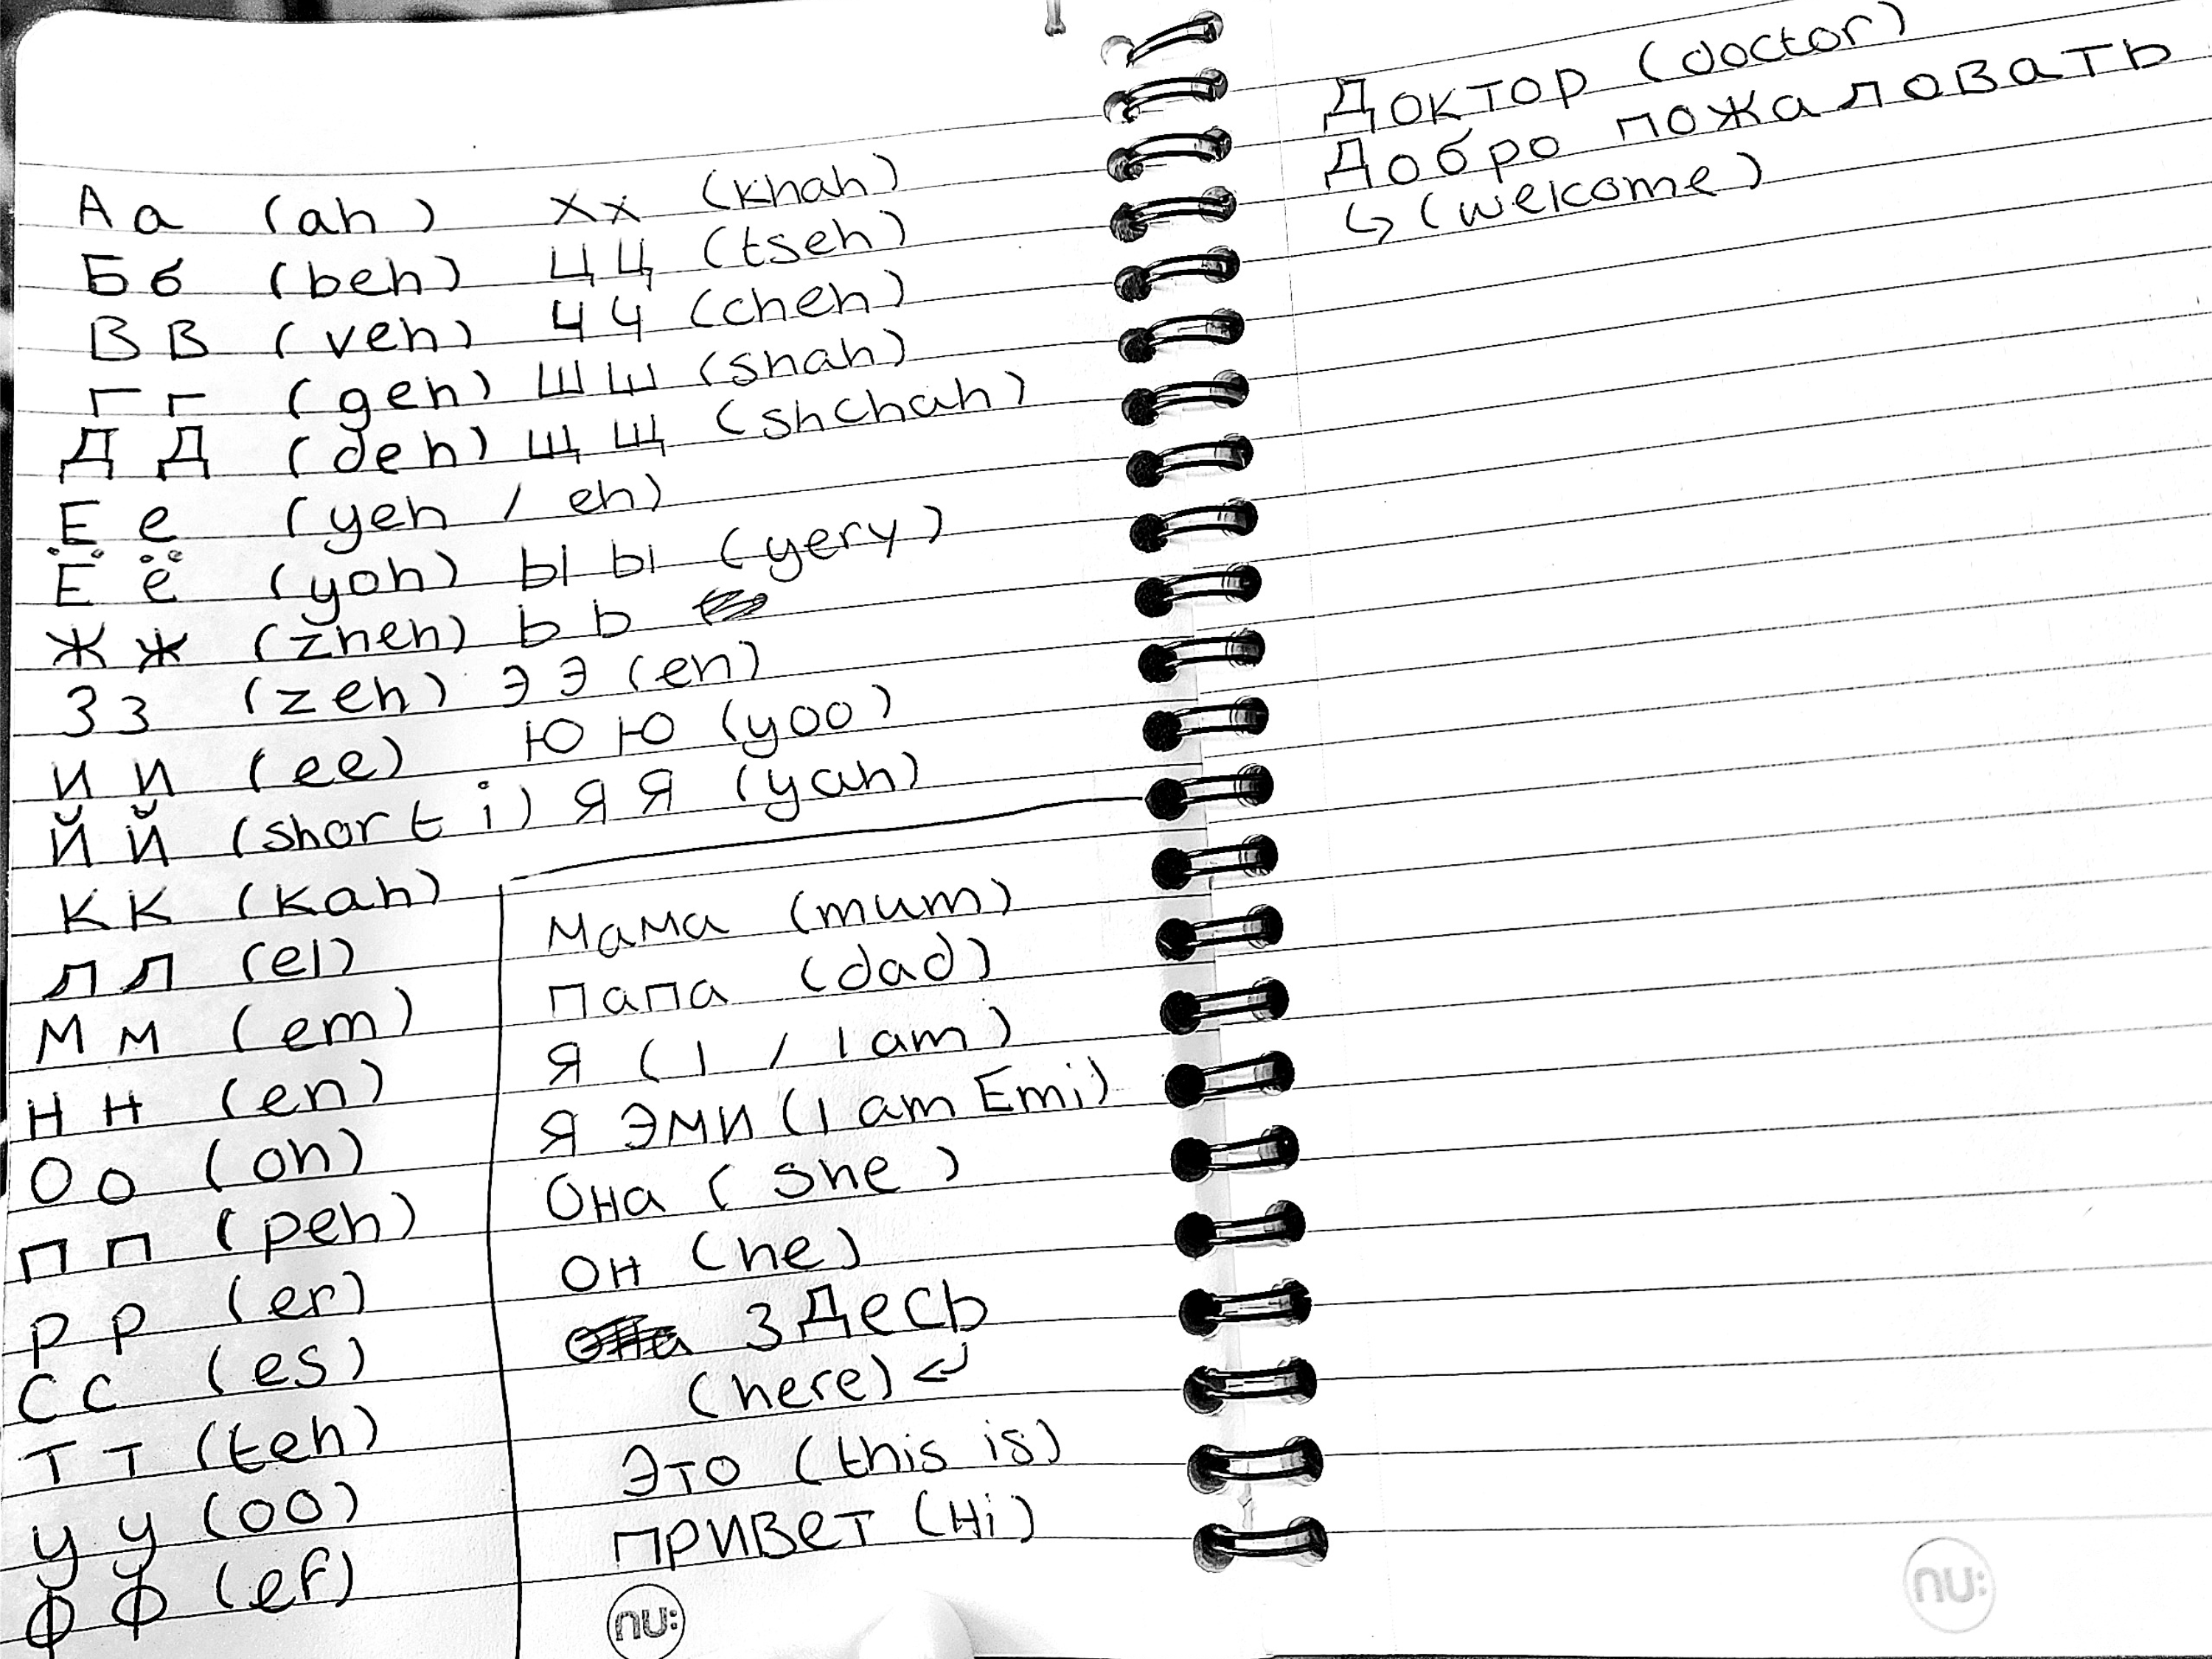 Аа (ah)
Бб (beh)
Вв (veh)
Гг (geh)
Дд (deh)
Ее (yeh / eh)
Ёё (yoh)
Жж (zheh)
Зз (zeh)
Ии (ee)
Йй (short i)
Кк (kah)
Лл (el)
Мм (em)
Нн (en)
Оо (oh)
Пп (peh)
Рр (er)
Сс (es)
Тт (teh)
Уу (oo)
Фф (ef)
Хх (khah)
Цц (tseh)
Чч (cheh)
Шш (shah)
Щщ (shchah)
Ыы (yery)
Ьь
Ээ (eh)
Юю (yoo)
Яя (yah)
Мама (mum)
Папа (dad)
Я (I / I am)
Я Эми (I am Emi)
Она (she)
Он (he)
Здесь
(here)
Это (this is)
Привет (Hi)
nu:
Доктор (doctor)
Добро пожаловать
(welcome)
nu: